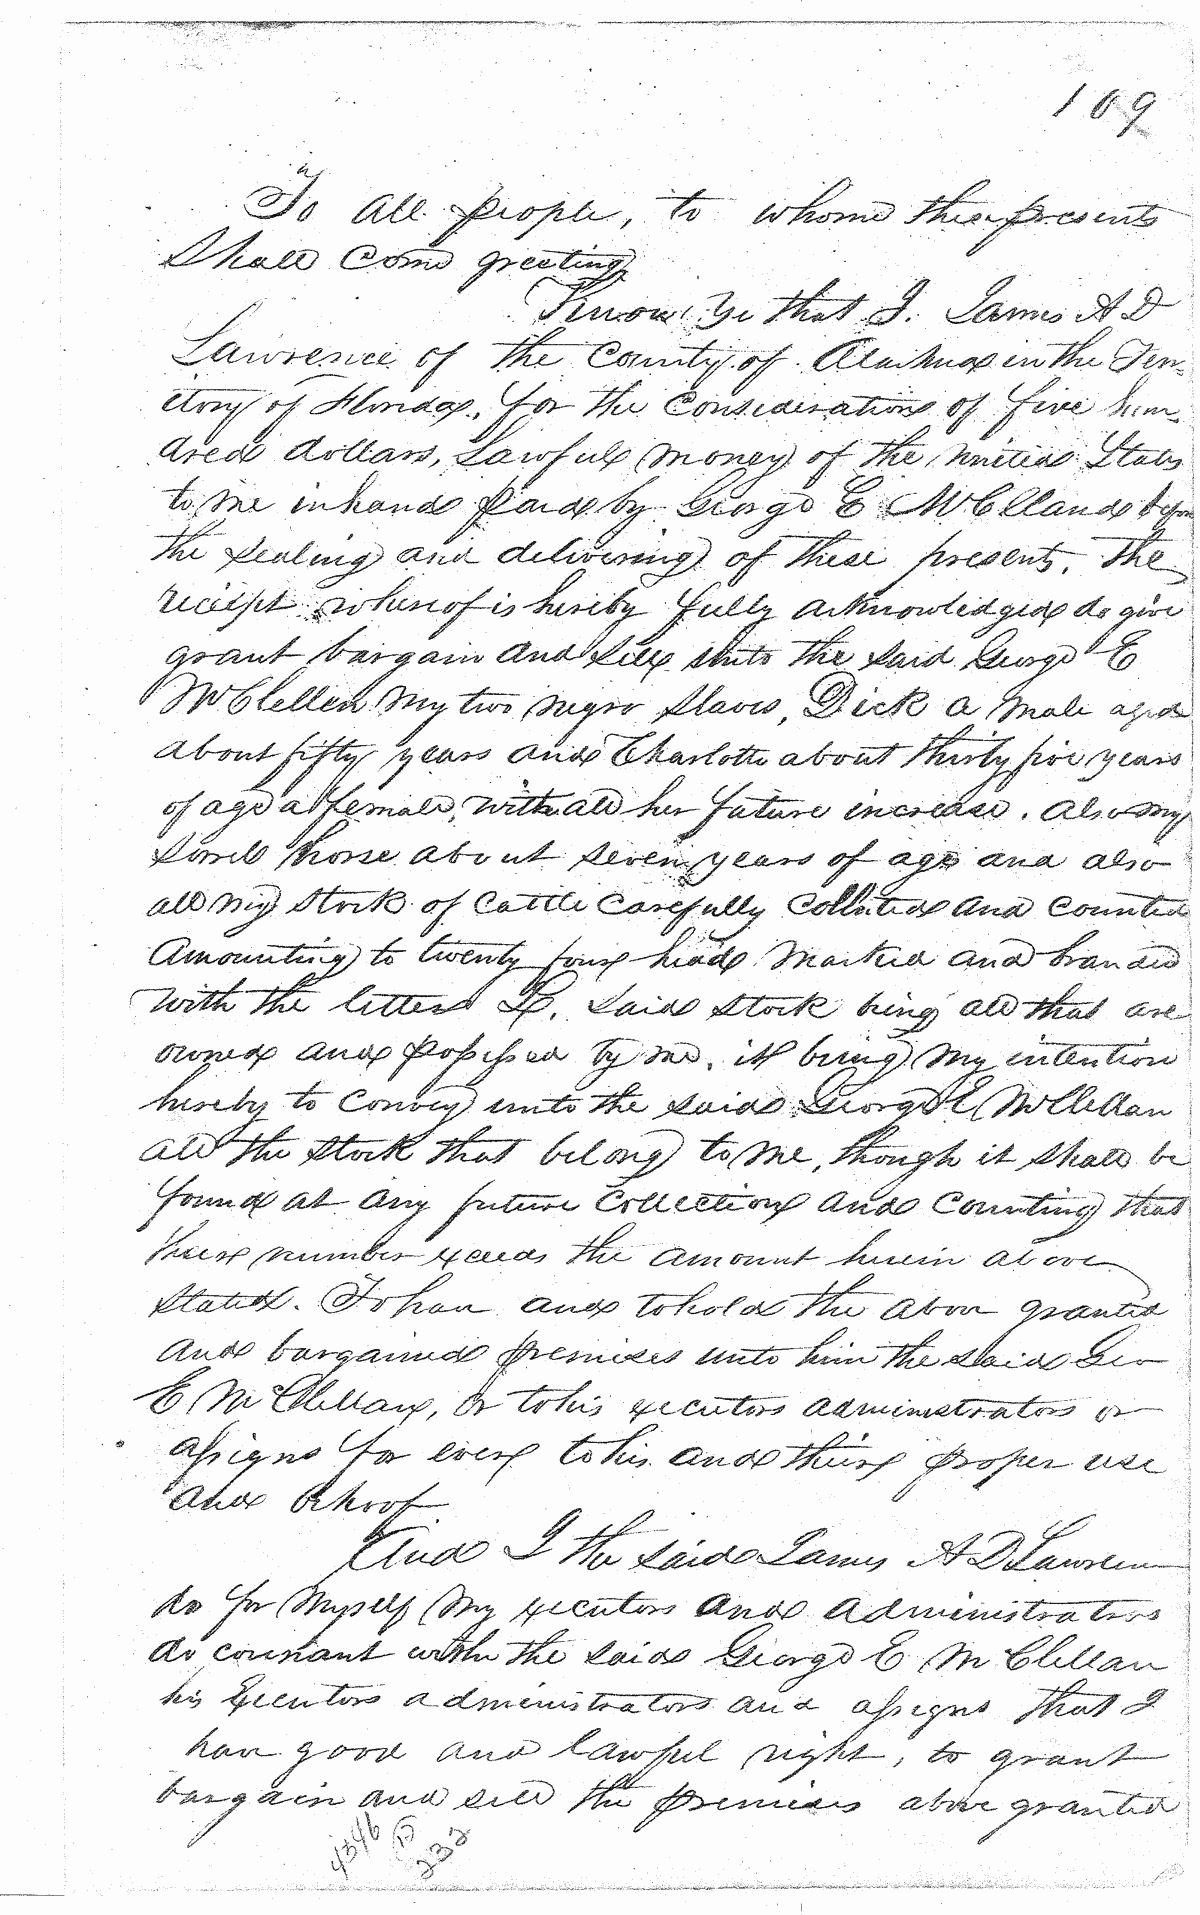 109
To all people, to whome these presents
Shall Come greeting
Know Ye that I. James A D
Lawrence of the County of Alachua in the Terr-
itory of Florida, for the Consideration of five hun-
dred dollars, Lawful money of the United States
to me in hand paid by George E McClland before
the sealing and delivering of these presents, the
receipt whereof is hereby fully acknowledged do give
grant bargain and sell unto the said George E
McClellen my two negro slaves, Dick a male aged
about fifty years and Charlotte about thirty five years
of age a female, with all her future increase. also my
sorrel horse about seven years of age and also
all my stock of Cattle Carefully Collected and Counted
Amounting to twenty four head Marked and branded
with the letter L. said stock being all that are
owned and possessed by me, it being my intention
hereby to Convey unto the said George E McClellan
all the stock that belong to me, though it shall be
found at any future Collection and Counting that
their number exceeds the amount herein above
stated. To have and to hold the above granted
and bargained premises unto him the said Geo
E McClellan, or to his executors administrators or
assigns for ever to his and their proper use
and behoof
And I the said James A D Lawrence
do for myself my executors and administrators
do covenant with the said George E McClellan
his Executors administrators and assigns that I
have good and lawful right, to grant
bargain and sell the premises above granted
4346
B
232